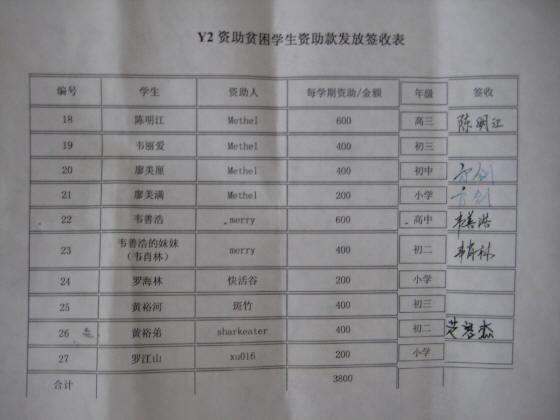 Y2 资助贫困学生资助款发放签收表
编号 学生 资助人 每学期资助/金额 年级 签收
18 陈明江 Methel 600 高三 陈明江
19 韦丽爱 Methel 400 初三
20 廖美厘 Methel 400 初中
21 廖美满 Methel 200 小学
22 韦善浩 merry 600 高中 韦善浩
23 韦善浩的妹妹 merry 400 初二 韦肖林
(韦肖林)
24 罗海林 快活谷 200 小学
25 黄裕河 斑竹 400 初三
26 黄裕弟 sharkeater 400 初二
27 罗江山 xu016 200 小学
合计 3800